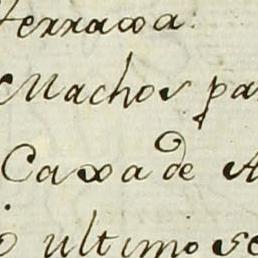 terraxa.
Machos pa
Caxa de A
o ultimo se